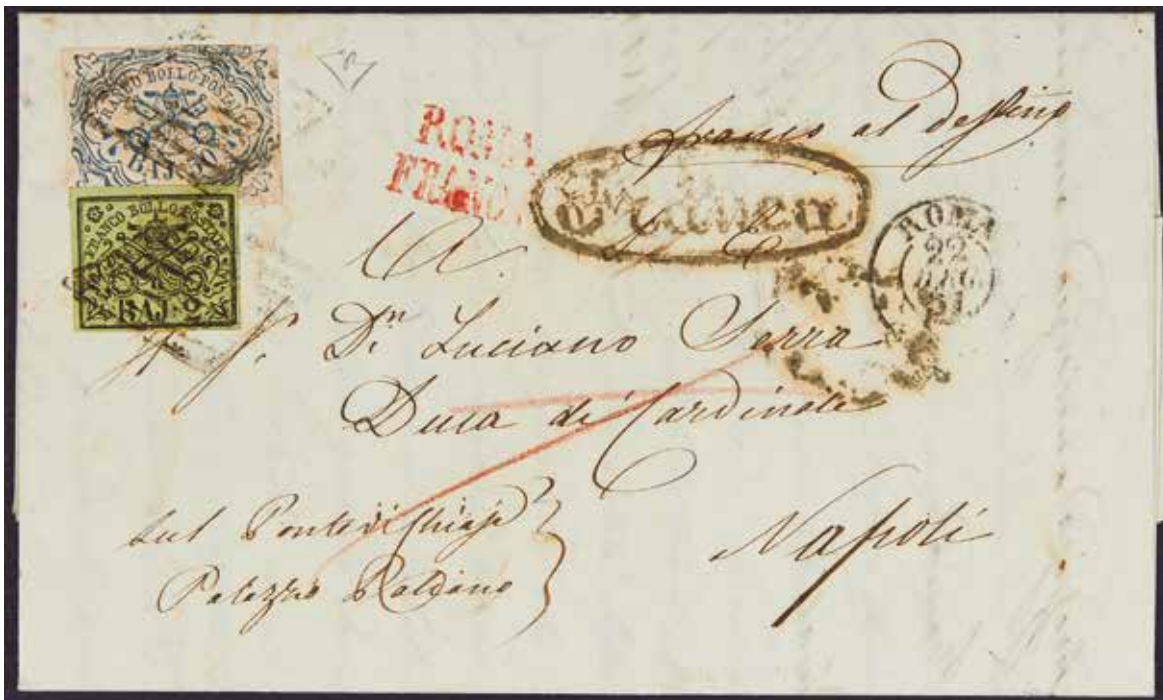 FRANCO BOLLO POSTALE
BAJ
FRANCO BOLLO POSTALE
BAJ. 2
ROMA
FRANCO
franco al destino
ROMA
22
MAG
51
A
S. E.
D. Luciano Serra
Duca di Cardinale
Napoli
sul Ponte di Chiaja
Palazzo